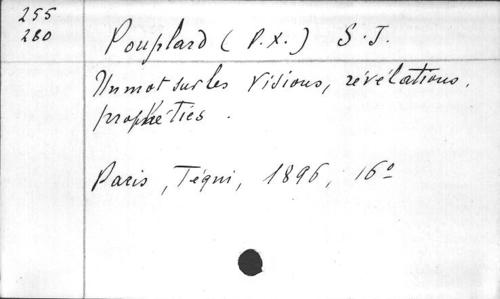 255
280
Pouplard (P.X.) S.J.
Un mot sur les visions, révélations,
prophéties.
Paris, Téqui, 1896, 16º